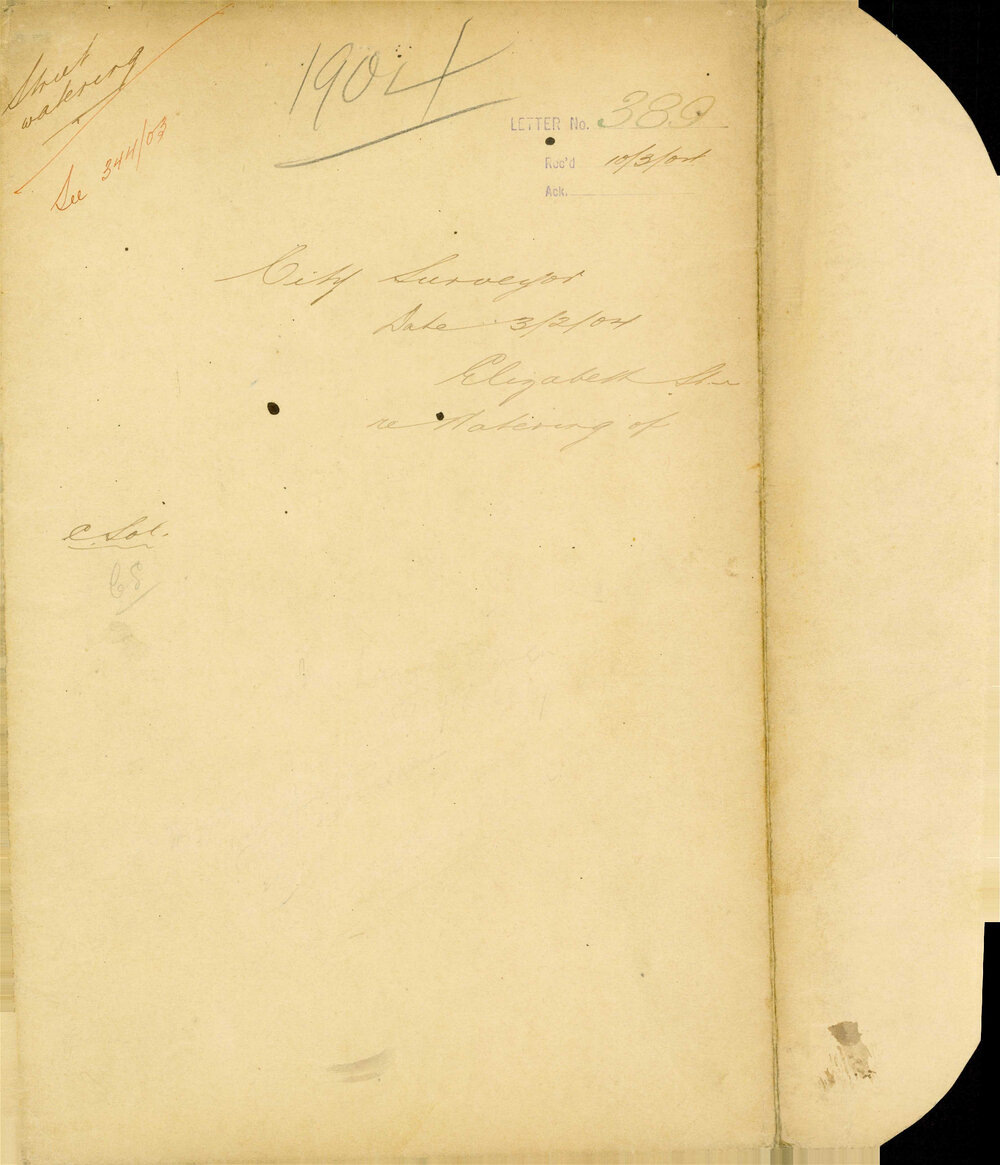 Street
watering
See 344/03
1904
LETTER No. 389
Rec'd 10/3/04
Ack.
City Surveyor
Date 3/3/04
Elizabeth St
re Watering of
C. Sol.
CS